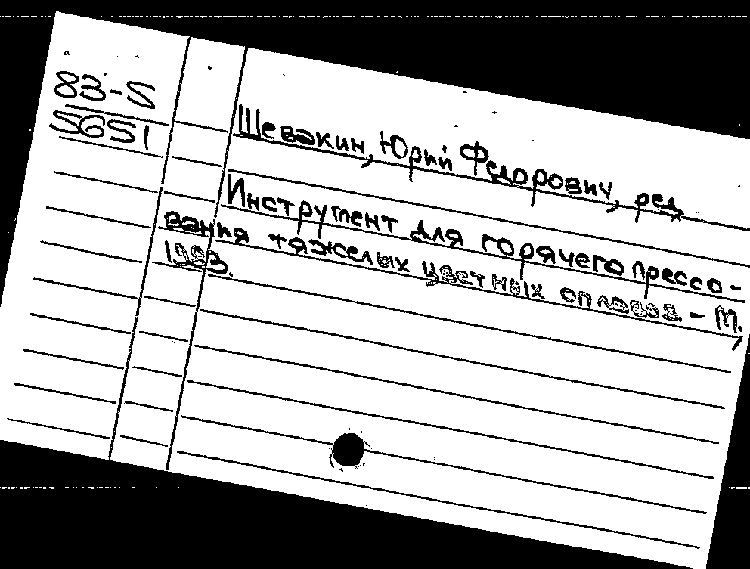 83-S
5651
Шевакин, Юрий Федорович, ред.
Инструмент для горячего прессо-
вания тяжелых цветных сплавов. - М.,
1983.